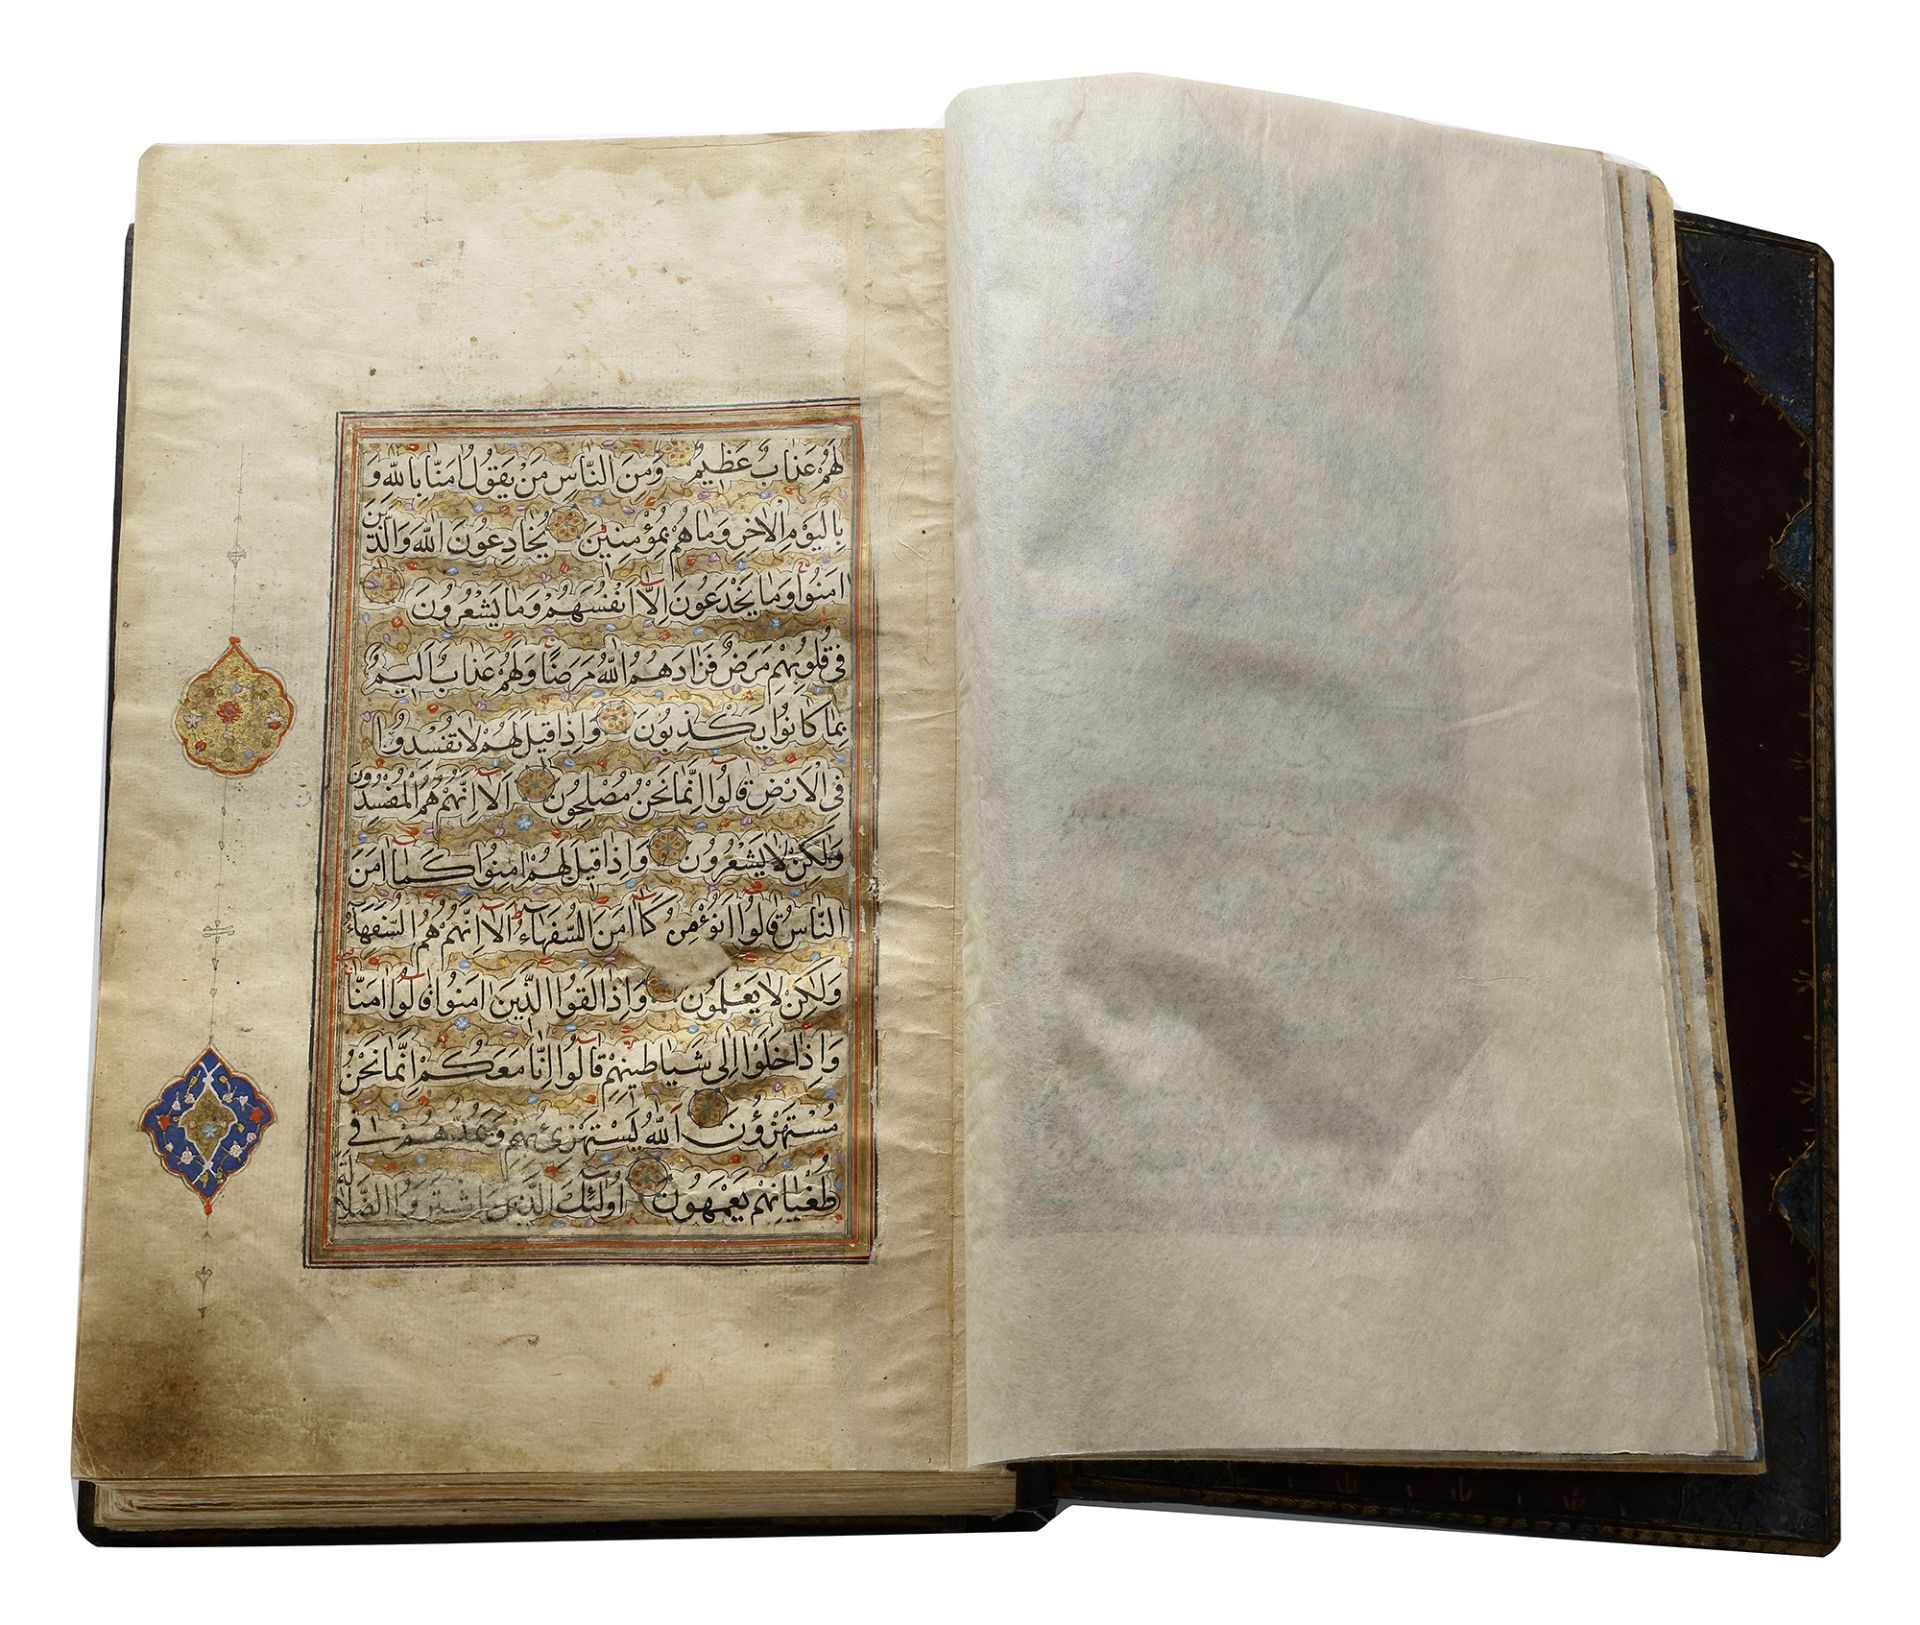 لَهُمْ عَذَابٌ عَظِيمٌ وَمِنَ النَّاسِ مَنْ يَقُولُ اٰمَنَّا بِاللّٰهِ وَ
بِالْيَوْمِ الْاٰخِرِ وَمَا هُمْ بِمُؤْمِنِينَ يُخَادِعُونَ اللّٰهَ وَالَّذِينَ
اٰمَنُوا وَمَا يَخْدَعُونَ اِلَّا اَنْفُسَهُمْ وَمَا يَشْعُرُونَ
فِي قُلُوبِهِمْ مَرَضٌ فَزَادَهُمُ اللّٰهُ مَرَضًا وَلَهُمْ عَذَابٌ اَلِيمٌ
بِمَا كَانُوا يَكْذِبُونَ وَاِذَا قِيلَ لَهُمْ لَا تُفْسِدُوا
فِي الْاَرْضِ قَالُوا اِنَّمَا نَحْنُ مُصْلِحُونَ اَلَا اِنَّهُمْ هُمُ الْمُفْسِدُونَ
وَلٰكِنْ لَا يَشْعُرُونَ وَاِذَا قِيلَ لَهُمْ اٰمِنُوا كَمَا اٰمَنَ
النَّاسُ قَالُوا اَنُؤْمِنُ كَمَا اٰمَنَ السُّفَهَاءُ اَلَا اِنَّهُمْ هُمُ السُّفَهَاءُ
وَلٰكِنْ لَا يَعْلَمُونَ وَاِذَا لَقُوا الَّذِينَ اٰمَنُوا قَالُوا اٰمَنَّا
وَاِذَا خَلَوْا اِلٰى شَيَاطِينِهِمْ قَالُوا اِنَّا مَعَكُمْ اِنَّمَا نَحْنُ
مُسْتَهْزِؤُنَ اَللّٰهُ يَسْتَهْزِئُ بِهِمْ وَيَمُدُّهُمْ فِي
طُغْيَانِهِمْ يَعْمَهُونَ اُولٰئِكَ الَّذِينَ اشْتَرَوُا الضَّلَالَةَ